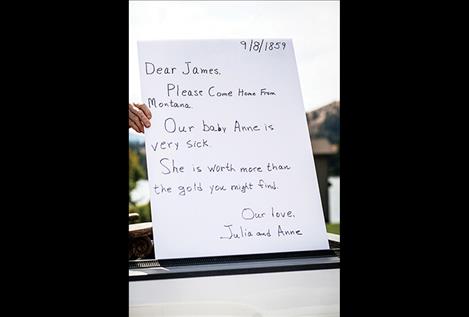 9/8/1859
Dear James,
Please Come Home From
Montana.
Our baby Anne is
very sick.
She is worth more than
the gold you might find.
Our love,
Julia and Anne